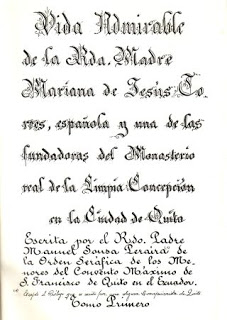 Vida Admirable
de la Rda. Madre
Mariana de Jesús To-
rres, española y una de las
fundadoras del Monasterio
real de la Limpia Concepción
en la Ciudad de Quito
Escrita por el Rvdo. Padre
Manuel Sousa Pereira de
la Orden Seráfica de los Me-
nores del Convento Máximo de
S. Francisco de Quito en el Ecuador.
Tomo Primero